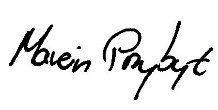 Marcin Przybyt